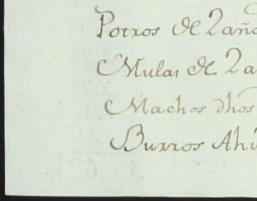 Potros de 2 año
Mulas de 2 a
Machos dhos
Burros Ahu